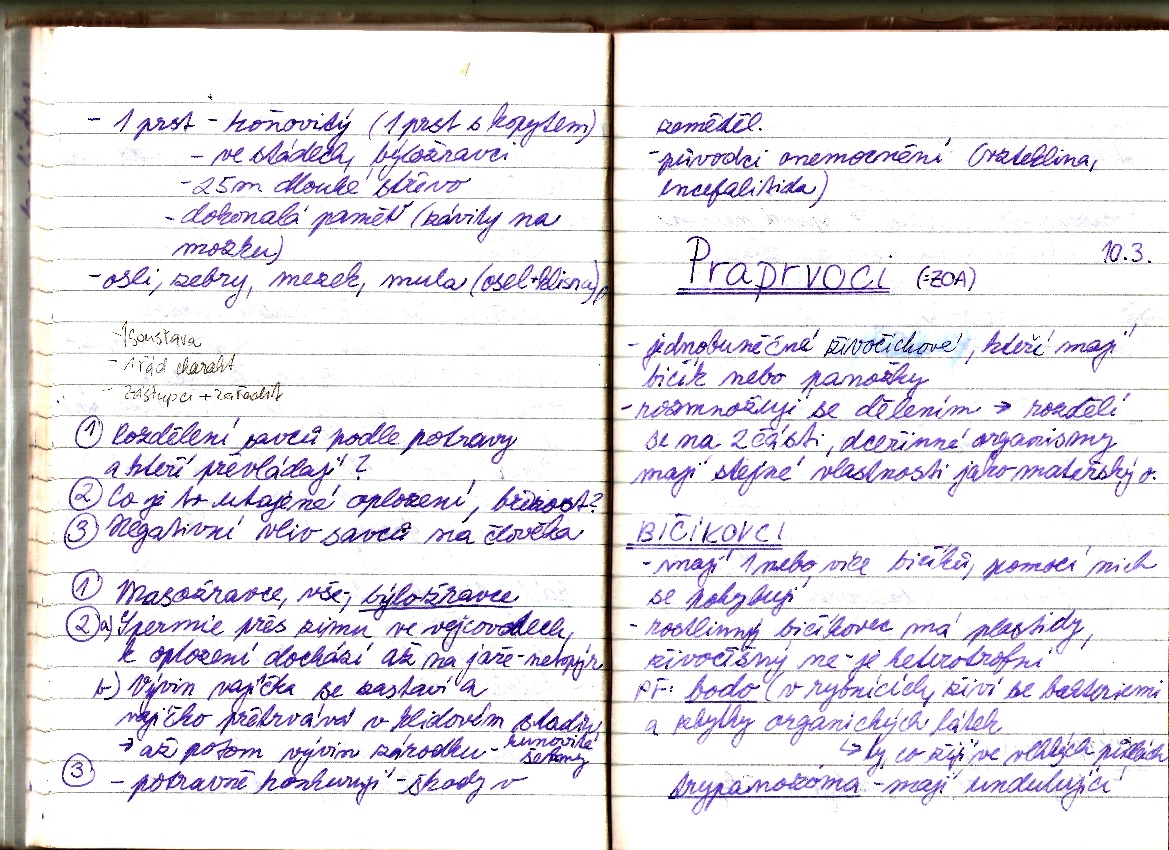 - 1 prst - koňovitý (1 prst s kopytem)
- ve stádech, býložravci
- 25m dlouhé střevo
- dokonalá paměť (závity na
mozku)
- osli, zebry, mezek, mula (osel+klisna)
- 1 soustava
- 1 řád charakt
- zástupci + zařadit
① Rozdělení savců podle potravy
a kteří převládají?
② Co je to utajené oplození, březost?
③ Negativní vliv savců na člověka
① Masožravce, vše-, býložravce
② a) Spermie přes zimu ve vejcovodech,
k oplození dochází až na jaře - netopýr
b) Vývin vajíčka se zastaví a
vajíčko přetrvává v klidovém stadiu
→ až potom vývin zárodku - kunovité
šelmy
③ - potravně konkurují - škody v
zeměděl.
- původci onemocnění (vzteklina,
encefalitida)
10.3.
Praprvoci (-ZOA)
- jednobuněčné živočichové, kteří mají
bičík nebo panožky
- rozmnožují se dělením → rozdělí
se na 2 části, dceřinné organismy
mají stejné vlastnosti jako mateřský o.
BIČÍKOVCI
- mají 1 nebo více bičíků, pomocí nich
se pohybují
- rostlinný bičíkovec má plastidy,
živočišný ne - je heterotrofní
PŘ: bodo (v rybnících, živí se bakteriemi
a zbytky organických látek
↳ ty, co žijí ve vlhkých půdách
trypanozóma - mají undulující